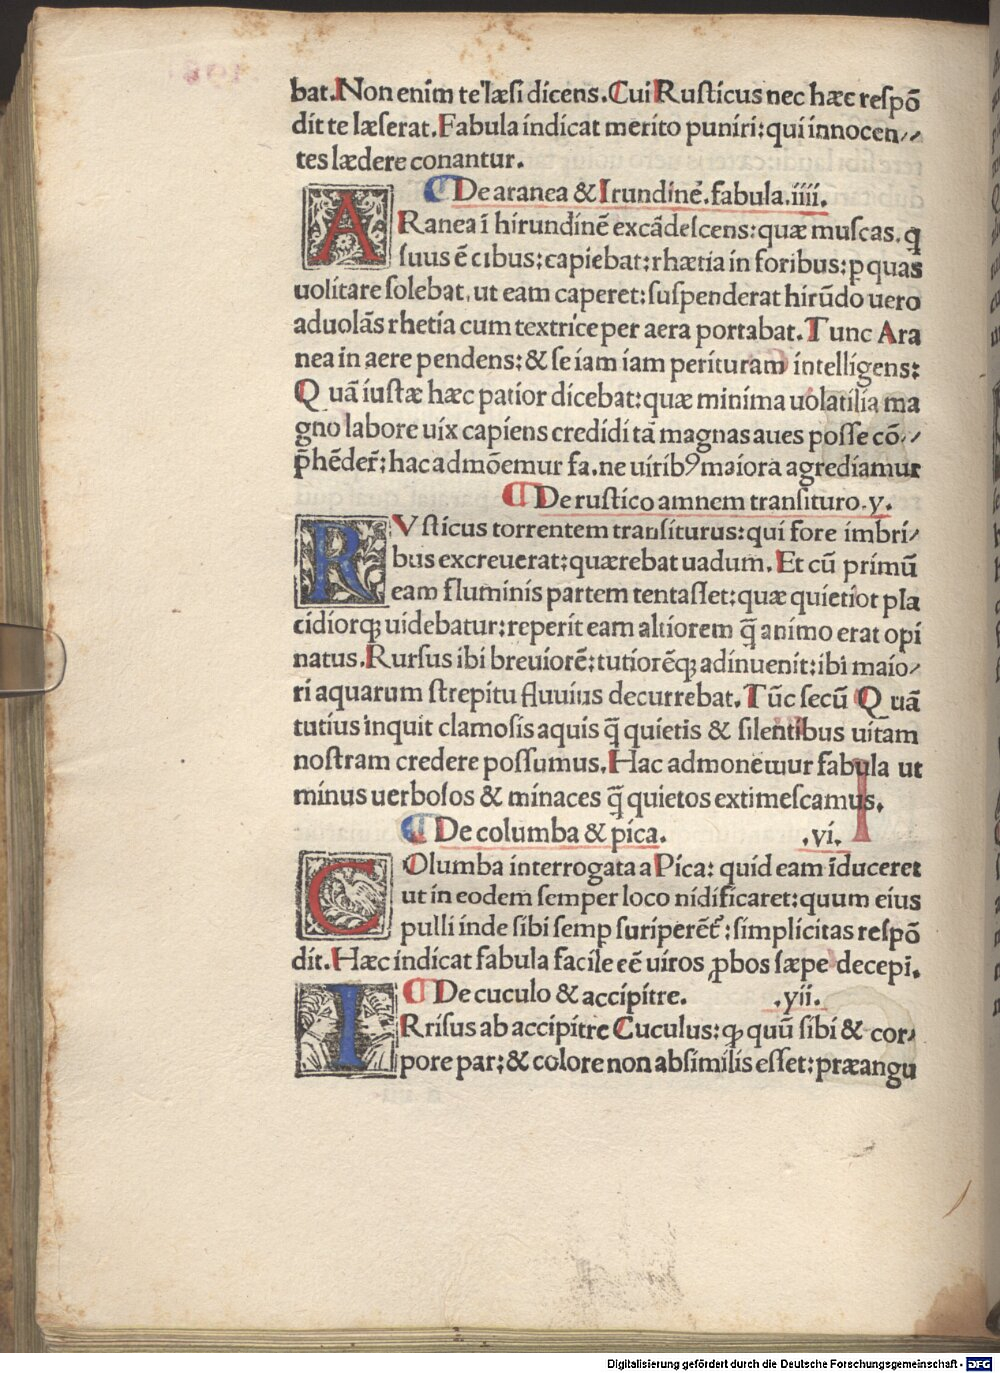 bat.Non enim te læsi dicens.Cui Rusticus nec hæc respõ
dit te læserat.Fabula indicat merito puniri:qui innocen//
tes lædere conantur.
De aranea & Irundinẽ.fabula.iiii.
ARanea ĩ hirundinẽ excãdescens:quæ muscas.q̃
suus ẽ cibus:capiebat:rhætia in foribus:ꝑ quas
uolitare solebat.ut eam caperet:suspenderat hirũdo uero
aduolãs rhetia cum textrice per aera portabat.Tunc Ara
nea in aere pendens:& se iam iam perituram intelligens:
Quã iustæ hæc patior dicebat:quæ minima uolatilia ma
gno labore uix capiens credidi tã magnas aues posse cõ//
p̃hẽder̃:hac admõemur fa.ne uiribꝰ maiora agrediamur
De rustico amnem transituro.y.
RVsticus torrentem transiturus:qui fore imbri/
bus excreuerat:quærebat uadum.Et cũ primũ
eam fluminis partem tentasset:quæ quietior pla
cidiorqꝫ uidebatur:reperit eam altiorem q̃ animo erat opi
natus.Rursus ibi breuiorẽ:tutiorẽqꝫ adinuenit:ibi maio/
ri aquarum strepitu fluuius decurrebat.Tũc secũ Quã
tutius inquit clamosis aquis q̃ quietis & silentibus uitam
nostram credere possumus.Hac admonemur fabula ut
minus uerbosos & minaces q̃ quietos extimescamus.
De columba & pica. .vi.
COlumba interrogata a Pica: quid eam ĩduceret
ut in eodem semper loco nidificaret:quum eius
pulli inde sibi semꝑ suriperẽt:simplicitas respõ
dit.Hæc indicat fabula facile eẽ uiros ꝓbos sæpe decepi.
De cuculo & accipitre. .yii.
IRrisus ab accipitre Cuculus:ꝙ quũ sibi & cor/
pore par:& colore non absimilis esset:præangu
Digitalisierung gefördert durch die Deutsche Forschungsgemeinschaft - DFG